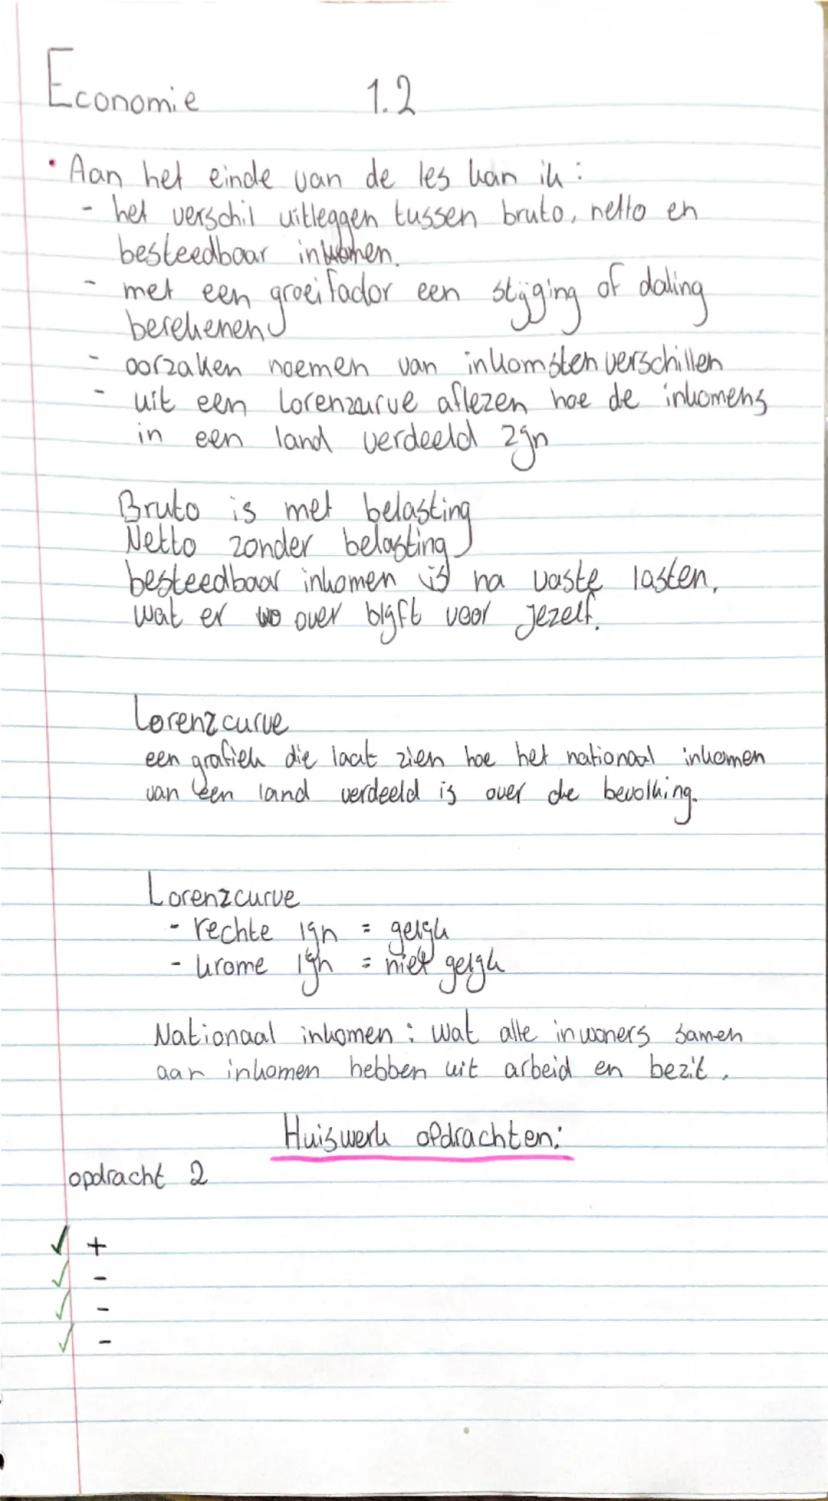 Economie 1.2
• Aan het einde van de les kan ik:
- het verschil uitleggen tussen bruto, netto en
besteedbaar inkomen.
- met een groeifactor een stijging of daling
berekenen
- oorzaken noemen van inkomstenverschillen
- uit een Lorenzcurve aflezen hoe de inkomens
in een land verdeeld zijn
Bruto is met belasting
Netto zonder belasting
besteedbaar inkomen is na vaste lasten,
wat er over blijft voor jezelf.
Lorenzcurve
een grafiek die laat zien hoe het nationaal inkomen
van een land verdeeld is over de bevolking.
Lorenzcurve
- rechte lijn = gelijk
- krome lijn = niet gelijk
Nationaal inkomen: wat alle inwoners samen
aan inkomen hebben uit arbeid en bezit.
Huiswerk opdrachten:
opdracht 2
✓ +
✓ -
✓ -
✓ -